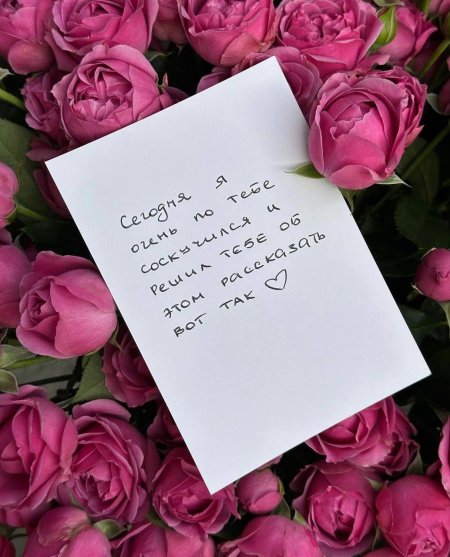 Сегодня я
очень по тебе
соскучился и
решил тебе об
этом рассказать
вот так ♡